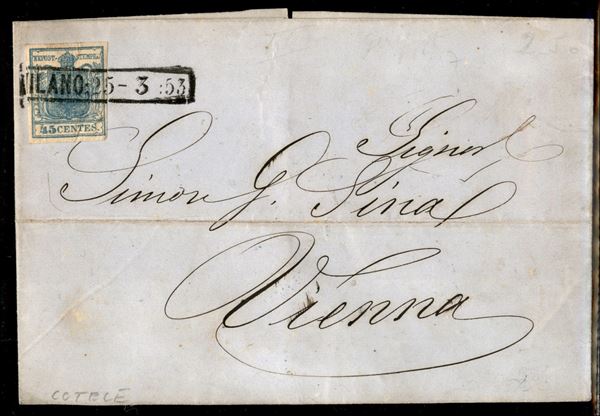 45 CENTES.
MILANO. 25-3.53
Signor
Simon G. Sina
Vienna
COTELÉ